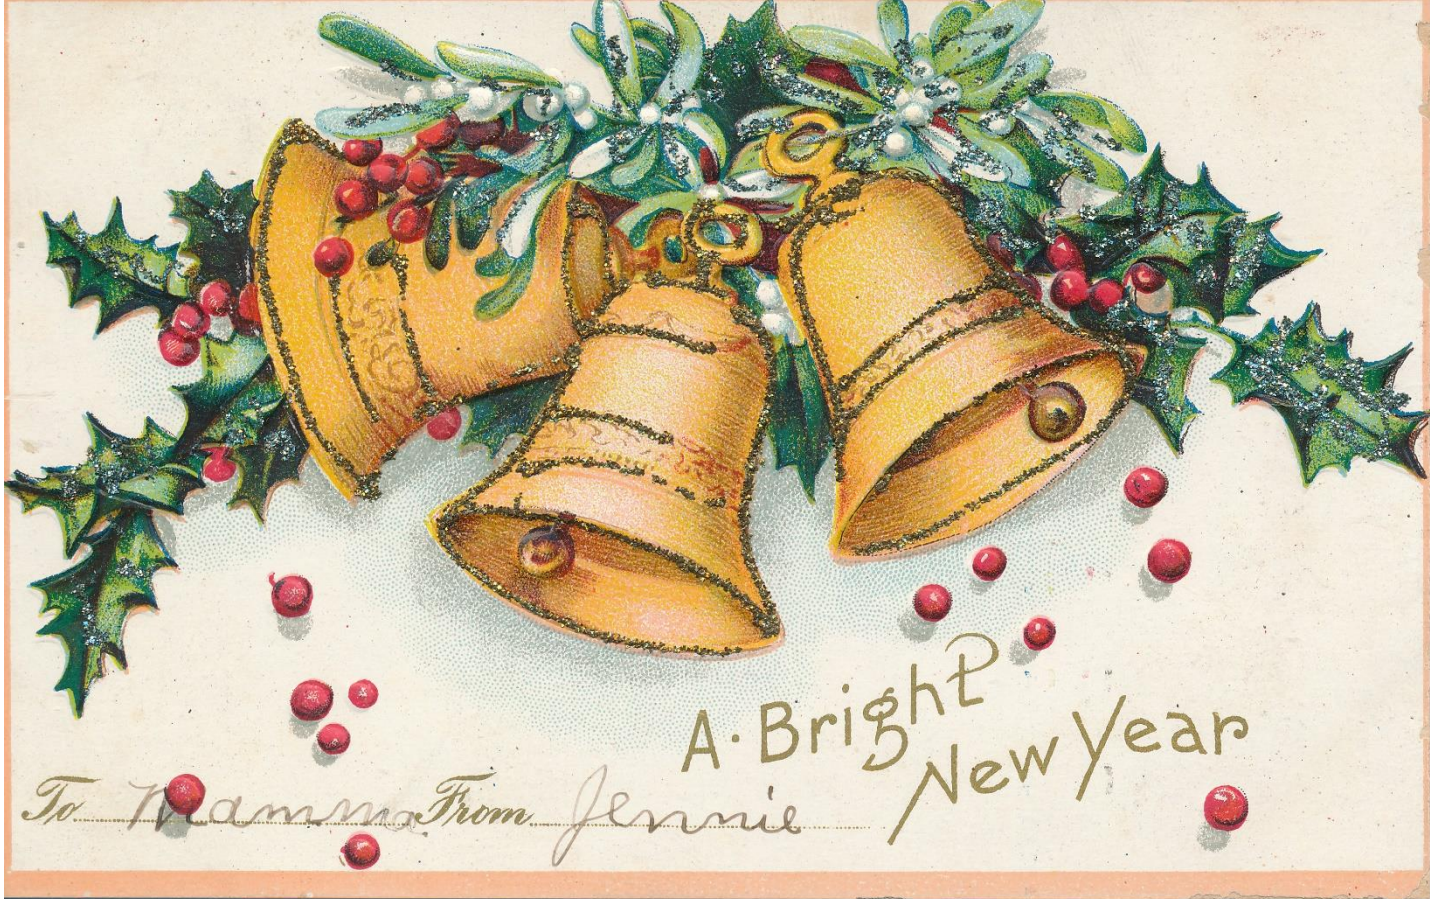 A · Bright
New Year
To Mamma From Jennie